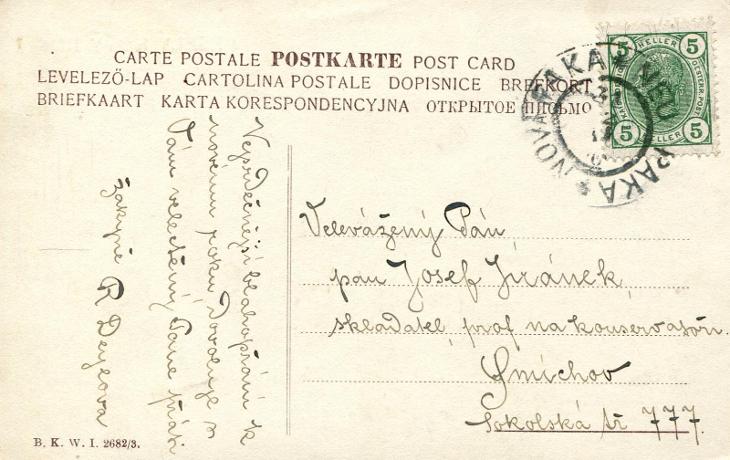 CARTE POSTALE POSTKARTE POST CARD
LEVELEZŐ-LAP CARTOLINA POSTALE DOPISNICE BREFKORT
BRIEFKAART KARTA KORESPONDENCYJNA ОТКРЫТОЕ ПИСЬМО
5 HELLER 5
5 HELLER 5
NEU PAKA
NOVÁ PAKA
Nejsrdečnější blahopřání k
novému roku dovoluje si
Vám velectěný Pane přáti
R Deylova
Velevážený Pán
pan Josef Jiránek,
skladatel, prof na konservatoři
Smíchov
Sokolská tř 777.
B. K. W. I. 2682/3.